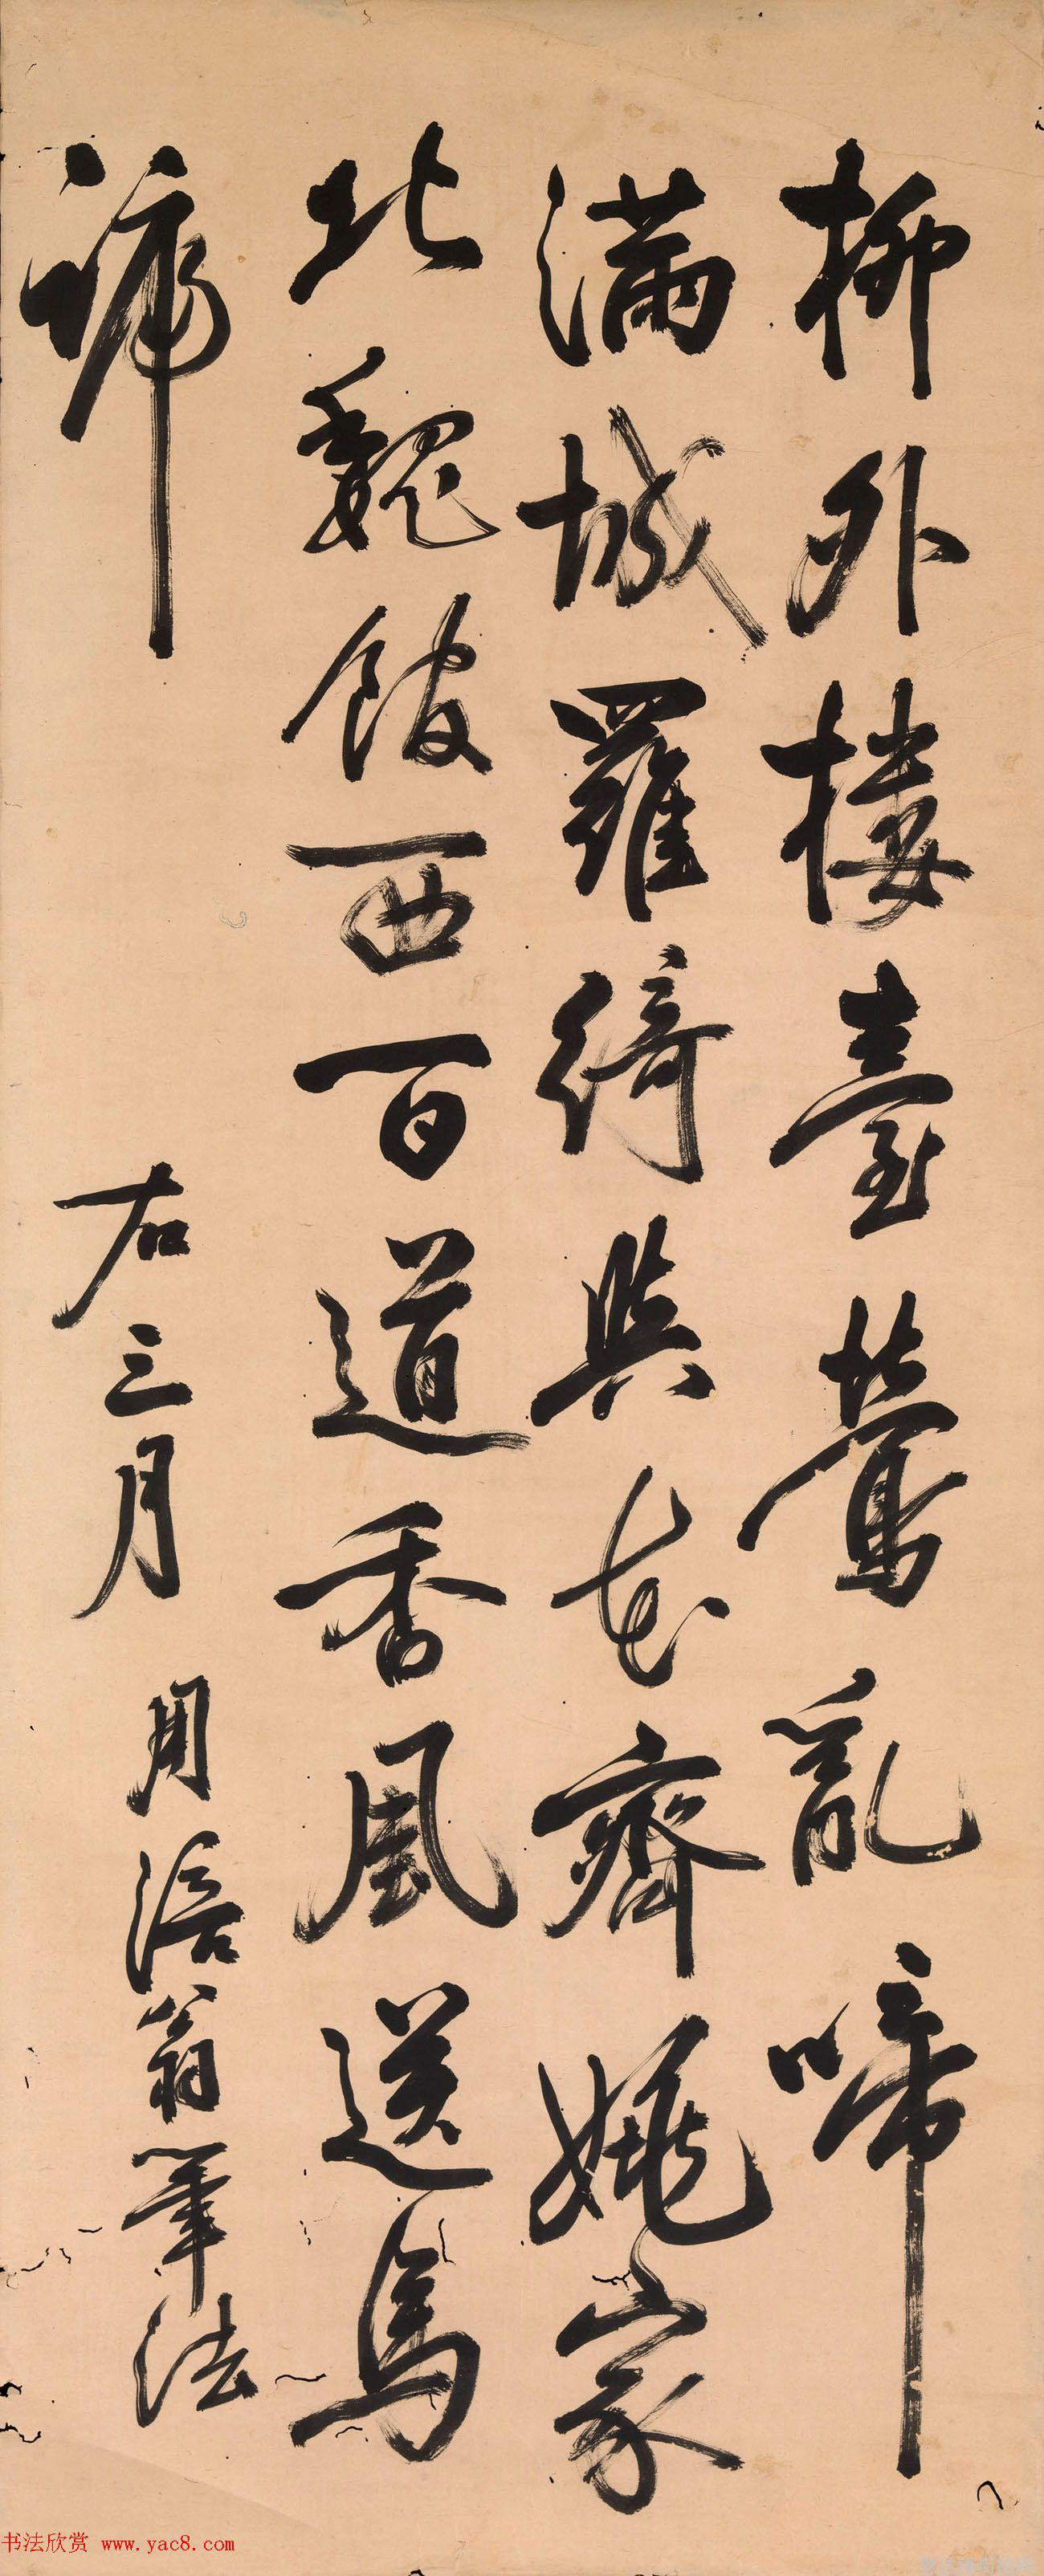 柳外樓臺鶯亂啼
滿城羅綺與花齊姚家
北魏館西百道香風送馬
蹄
右三月
用涪翁筆法
书法欣赏 www.yac8.com